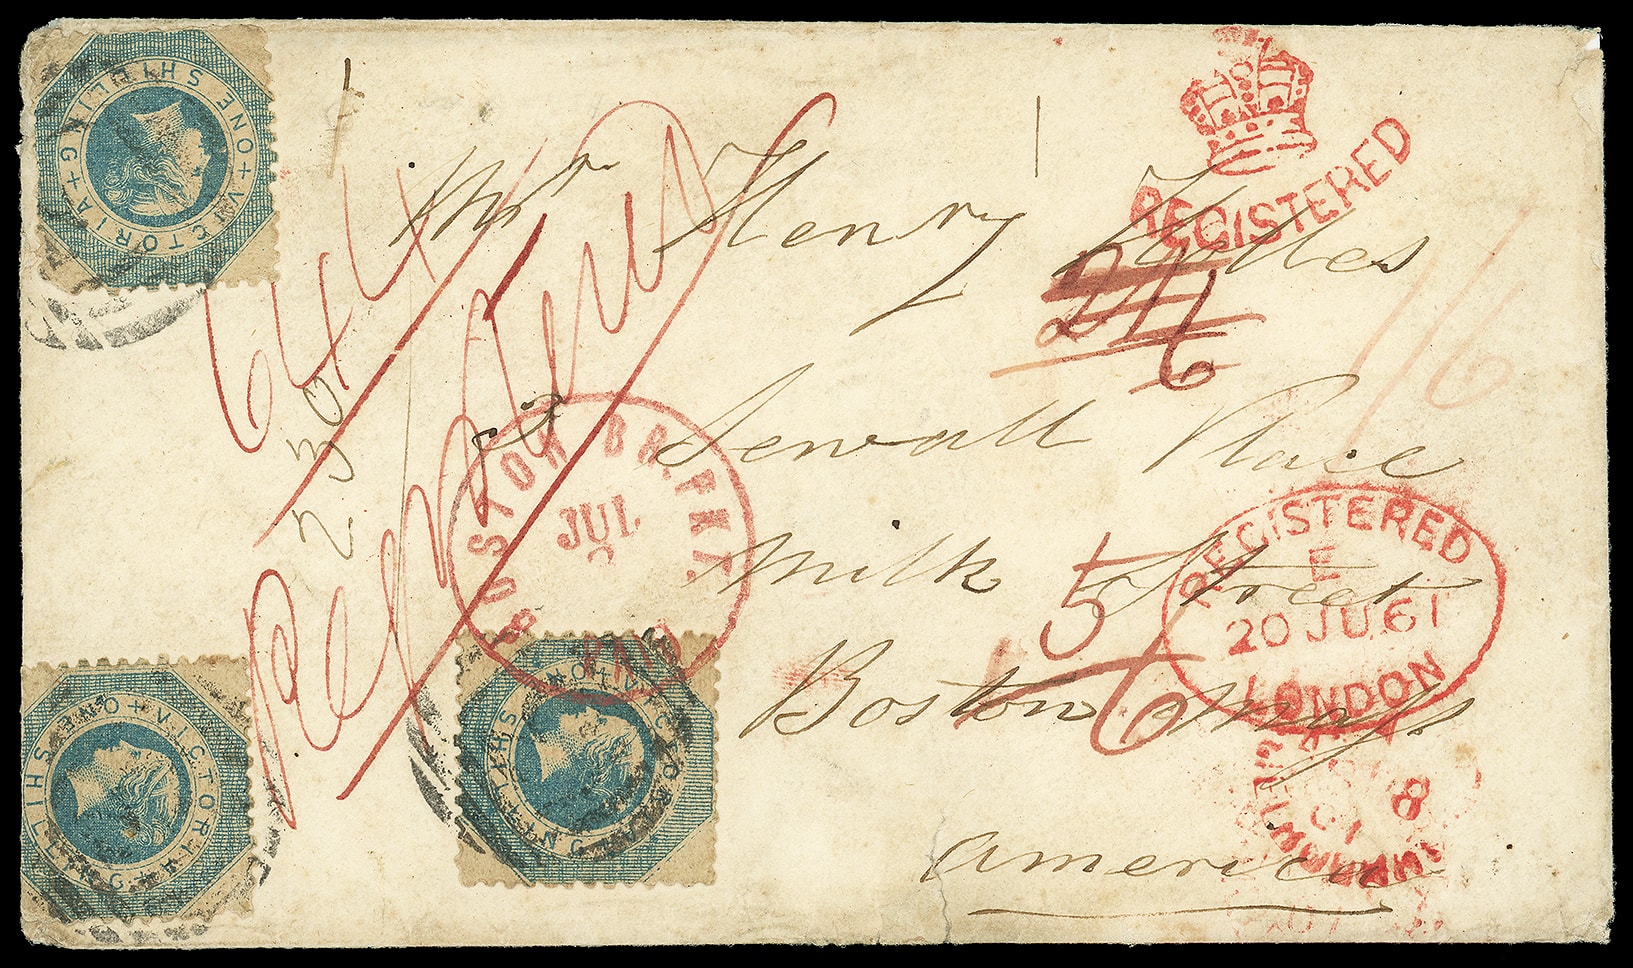 ONE SHILLING + VICTORIA +
REGISTERED
Mr Henry
2/6
1/6
644
2 30
Sewall Place
BOSTON BR. PKT.
JUL
PAID
Milk Street
5
REGISTERED
E
20 JU 61
LONDON
Boston Mass
6
America
8
61
ONE SHILLING + VICTORIA +
ONE SHILLING + VICTORIA +